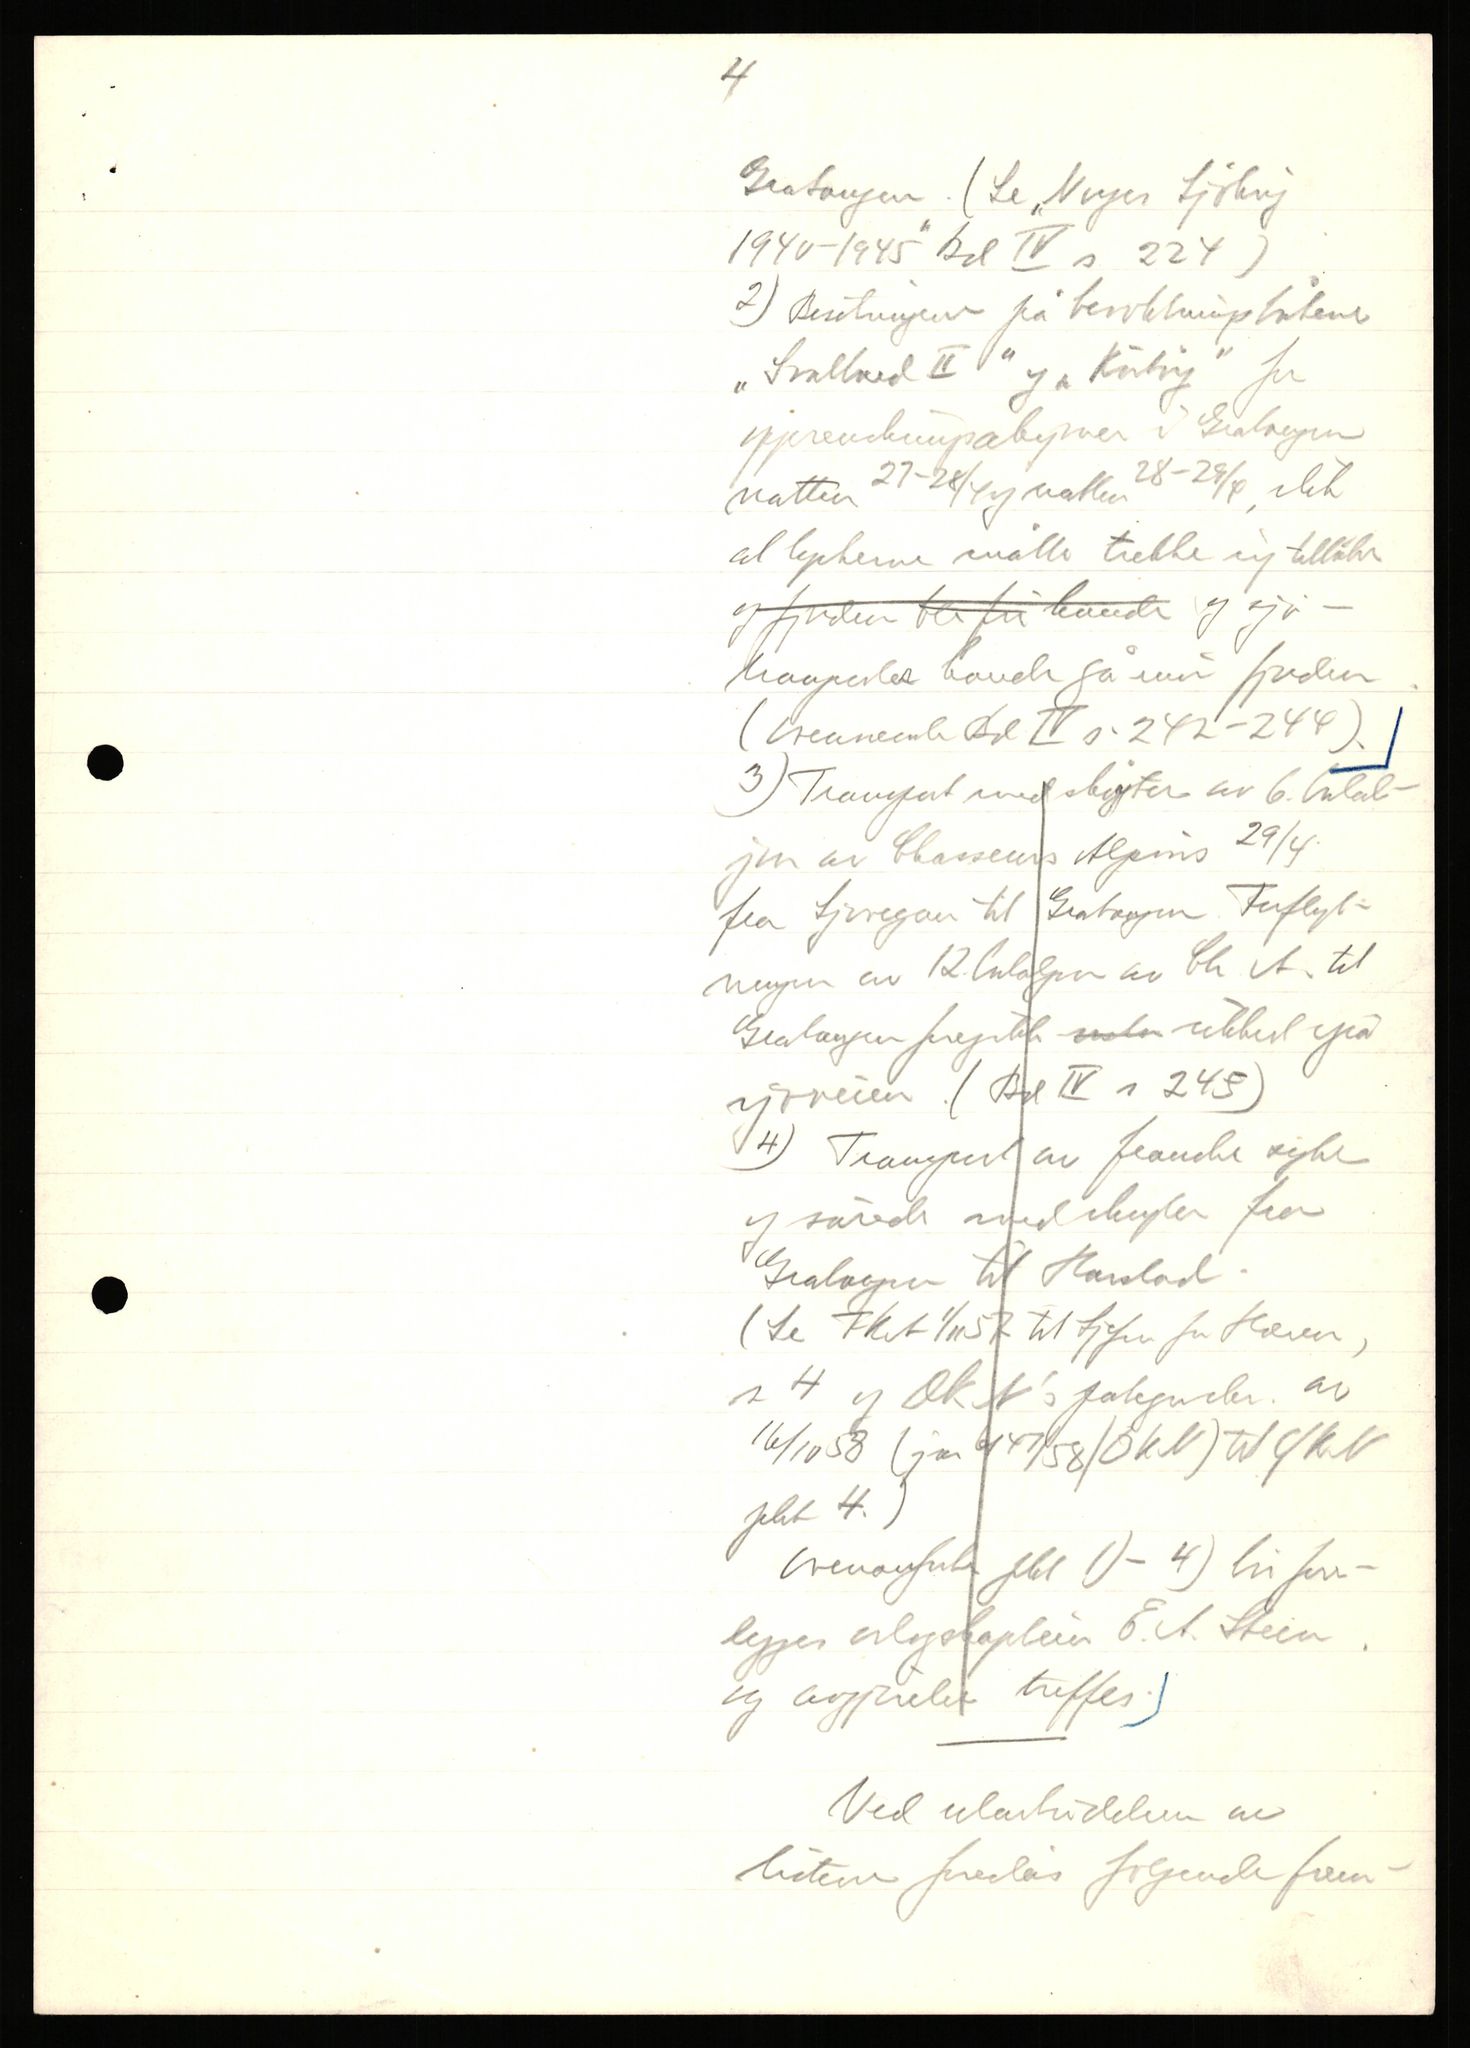 4
Gratangen. (Se „Norges Sjökrig
1940-1945" Bd IV s 224)
2) Besetningene på bevoktningsbåtene
„Svalbard II" og „Kvitøy" for
opprenskningsaksjoner i Gratangen
natten 27-28/4 og natten 28-29/4, slik
at tyskerne måtte trekke sig tilbake
og fjorden ble fri kunde og sjö-
transporter kunde gå inn fjorden.
(Ovennevnte Bd IV s. 242-244).
3) Transport med skøyter av 6. batal-
jon av Chasseurs Alpins 29/4
fra Sjøvegan til Gratangen. Forflyt-
ningen av 12. bataljon av Ch. A. til
Gratangen foregikk også
sjøveien. (Bd IV s 245)
4) Transport av franske syke
og sårede med skøyter fra
Gratangen til Harstad.
(Se FKA 1/11 57 til Sjefen for Hæren,
s 4 og ØKN's påtegnelse av
16/10 58 (jnr 447/58/ÖKN) til
pkt 4.)
Ovenanførte pkt 1)-4) bør fore-
legges orlogskaptein E. A. Steen
og avgjörelse treffes.
Ved utarbeidelsen av
listene foreslås følgende frem-